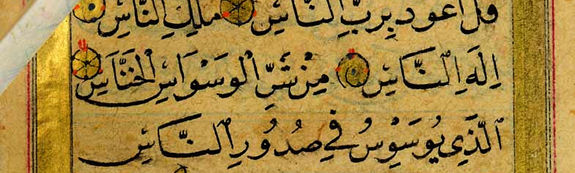 قُلْ أَعُوذُ بِرَبِّ النَّاسِ مَلِكِ النَّاسِ
إِلَهِ النَّاسِ مِنْ شَرِّ الْوَسْوَاسِ الْخَنَّاسِ
الَّذِي يُوَسْوِسُ فِي صُدُورِ النَّاسِ